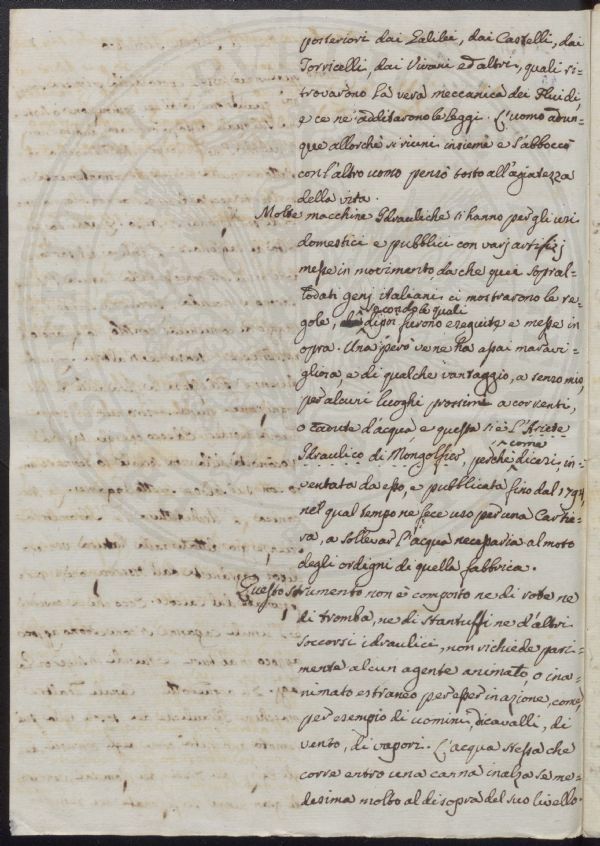 posteriori dai Galilei, dai Castelli, dai
Torricelli, dai Viviani ed altri, quali ri-
trovarono la vera meccanica dei Fluidi,
e ce ne additarono le leggi. L'uomo adun-
que allorchè si riunì insieme e s'abboccò
con l'altro uomo pensò tosto all'agiatezza
della vita.
Molte macchine Idrauliche si hanno per gli usi
domestici e pubblici con varj artifizj
messe in movimento, da che quei sopral-
lodati genj italiani ci mostrarono le re-
gole, secondo le quali
dipoi furono eseguite e messe in
opra. Una però ve ne ha assai maravi-
gliosa, e di qualche vantaggio, a senso mio,
per alcuni luoghi prossimi a correnti,
o cadute d'acqua, e questa si è L'Ariete
Idraulico di Mongolfier, perchè come dicesi, in-
ventata da esso, e pubblicata fino dal 1794,
nel qual tempo ne fece uso per una Cartie-
ra, a sollevar l'acqua necessaria al moto
degli ordigni di quella fabbrica.
Questo strumento non è composto ne di rote ne
di tromba, ne di stantuffi ne d'altri
soccorsi idraulici, non richiede pari-
mente alcun agente animato, o ina-
nimato estraneo per esser in azione, come
per esempio di uomini, di cavalli, di
vento, di vapori. L'acqua stessa che
corre entro una canna inalza se me-
desima molto al di sopra del suo livello.